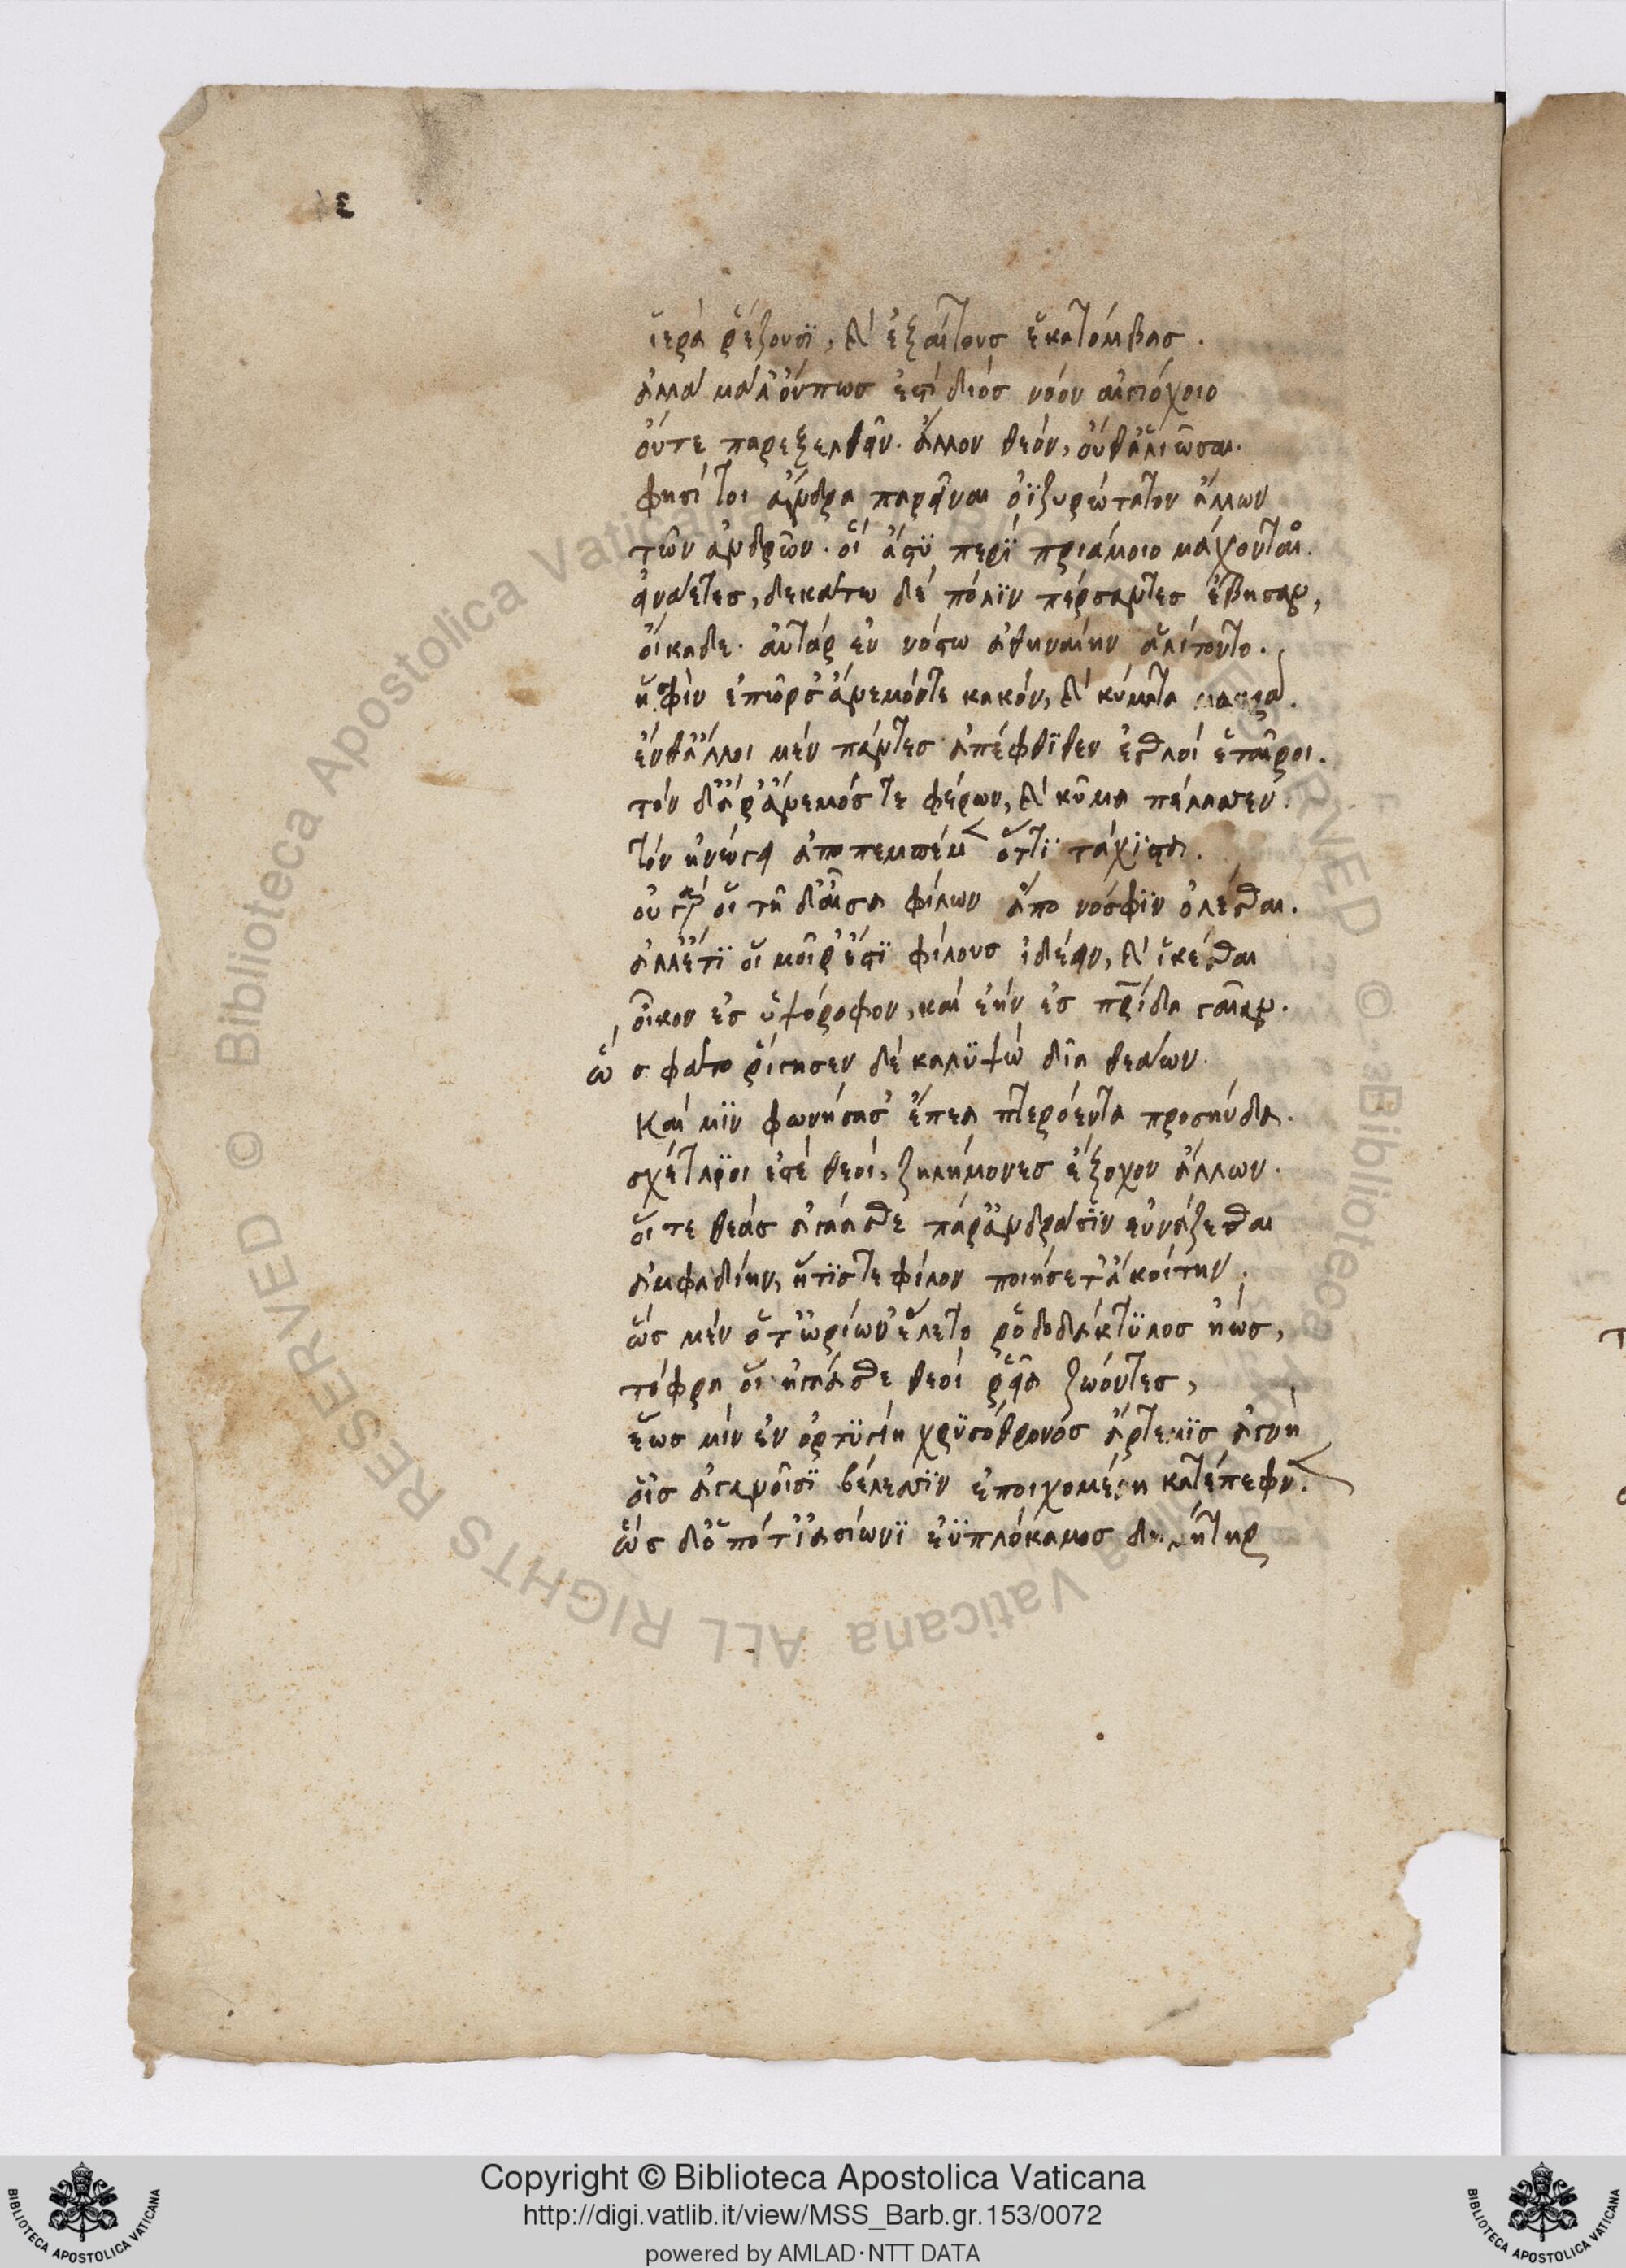 ε
ἱερά ῥέζουσϊ, καὶ ἐξαίτους ἑκατόμβας.
ἀλλὰ μάλ' οὔπως ἐστὶ διός νόον αἰγιόχοιο
οὔτε παρεξελθεῖν. ἄλλον θεόν, οὐθ' ἁλιῶσαι.
φησί τοι ἄνδρα παρεῖναι ὀϊζυρώτατον ἄλλων
τῶν ἀνδρῶν. οἵ ἄστϋ περϊ πριάμοιο μάχονται.
εἰνάετες, δεκάτω δέ πόλϊν πέρσαντες ἔβησαν,
οἴκαδε. ἀυτάρ ἐν νόστω ἀθηναίην ἀλίτοντο.
ἥ σφιν ἐπῶρσ' ἄνεμόντε κακόν, καὶ κύματα μακρά.
ἔνθ' ἄλλοι μέν πάντες ἀπέφθϊθεν ἐσθλοί ἑταῖροι.
τόν δ' ἄρ' ἄνεμός τε φέρων, καὶ κῦμα πέλασσεν.
τόν ἠνώγει ἀποπεμπέμεν ὅττϊ τάχϊστα.
οὐ γάρ οἱ τῆ δ' αἶσα φίλων ἄπο νόσφϊν ὀλέσθαι.
ἀλλ' ἔτϊ οἱ μοῖρ' ἐστϊ φίλους ἰδέειν, καὶ ἱκέσθαι
οἶκον ἐς ὑψόροφον, καί ἑήν ἐς πρίδα γαῖαν.
ὥς φάτο ῥίγησεν δέ καλϋψώ δῖα θεάων.
Καί μϊν φωνήσασ' ἔπεα πτερόεντα προσηύδα.
σχέτλϊοι ἐστέ θεοί, ζηλήμονες ἔξοχον ἄλλων.
οἵ τε θεάς ἀγάασθε πάρ' ἀνδράσϊν εὐνάζεσθαι
ἀμφαδίην, ἥτϊς τε φίλον ποιήσετ' ἀκοίτην.
ὥς μέν ὅτ' ὠρίων' ἕλετο ῥοδοδάκτϋλος ἠώς,
τόφρα οἱ ἠγάασθε θεοί ῥεῖα ζώοντες,
ἕως μίν ἐν ὀρτϋγίη χρϋσόθρονός ἄρτεμϊς ἁγνή
οἷς ἀγανοῖσϊ βέλεσϊν ἐποιχομένη κατέπεφνεν.
ὥς δ' ὁπότ' ἰασίωνϊ ἐϋπλόκαμος δημήτηρ
Copyright © Biblioteca Apostolica Vaticana
http://digi.vatlib.it/view/MSS_Barb.gr.153/0072
powered by AMLAD·NTT DATA
BIBLIOTECA APOSTOLICA VATICANA
BIBLIOTECA APOSTOLICA VATICANA
© Biblioteca Apostolica Vaticana ALL RIGHTS RESERVED